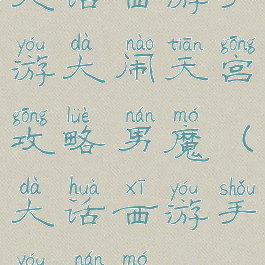 大话西游手
yóu dà nào tiān gōng
游大闹天宫
gōng lüè nán mó
攻略男魔（
dà huà xī yóu shǒu
大话西游手
yóu nán mó